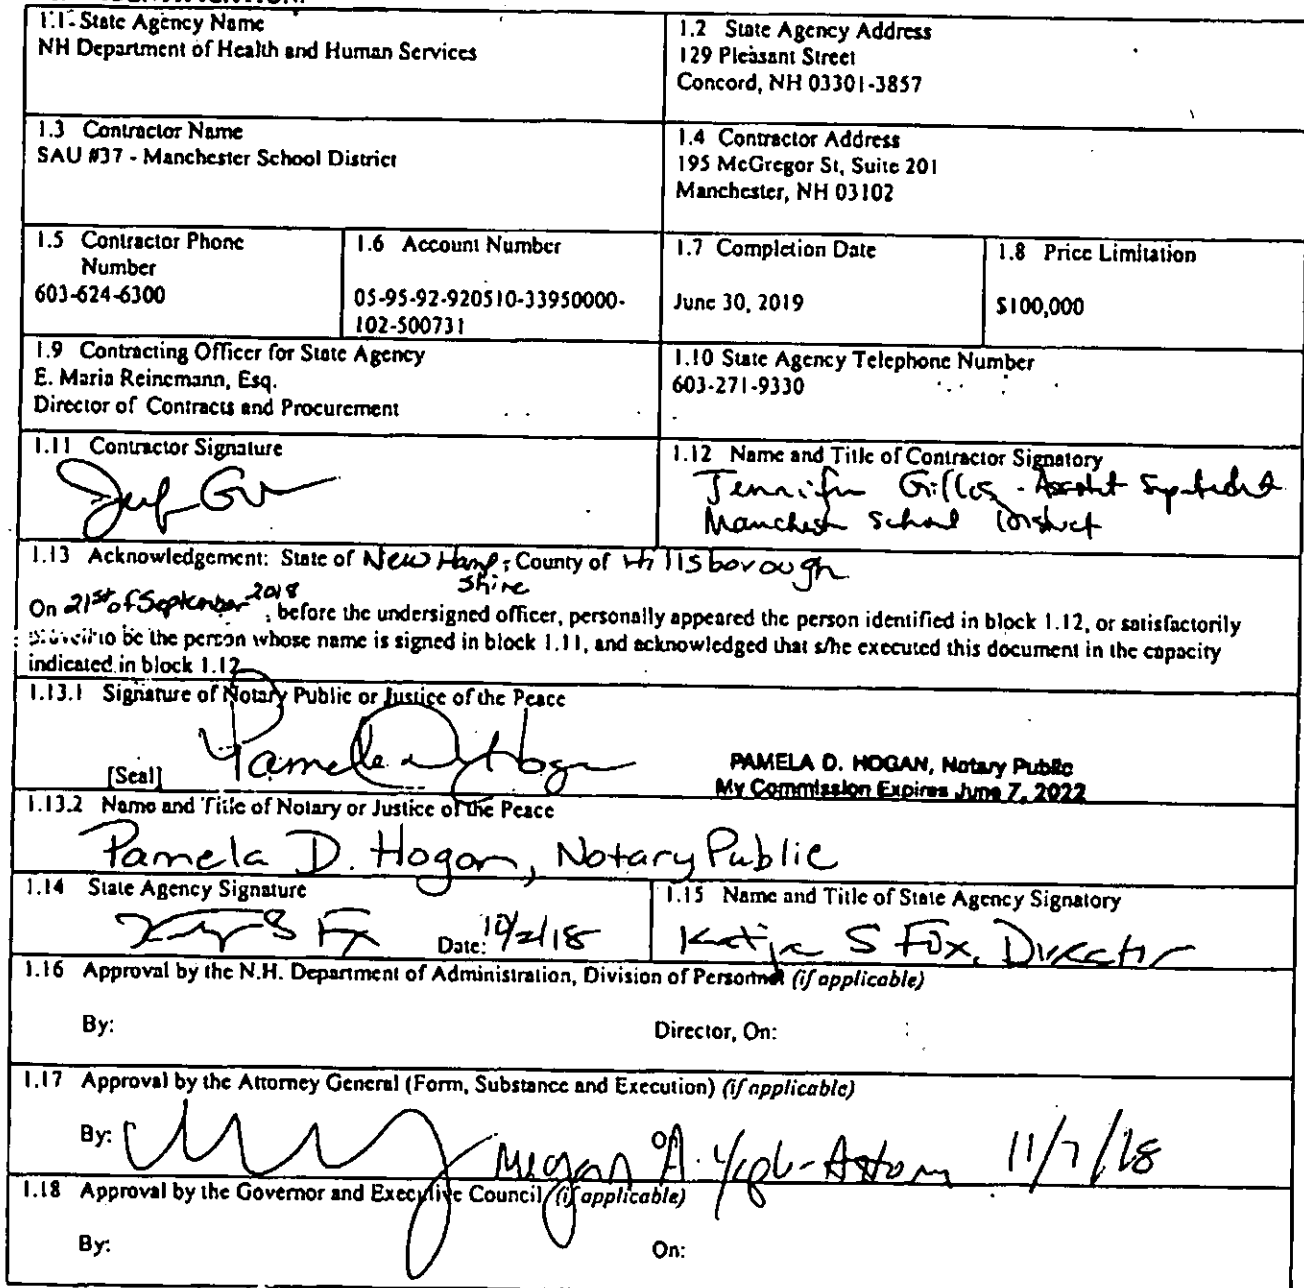 1.1 State Agency Name
NH Department of Health and Human Services
1.2 State Agency Address
129 Pleasant Street
Concord, NH 03301-3857
1.3 Contractor Name
SAU #37 - Manchester School District
1.4 Contractor Address
195 McGregor St, Suite 201
Manchester, NH 03102
1.5 Contractor Phone
Number
603-624-6300
1.6 Account Number
05-95-92-920510-33950000-
102-500731
1.7 Completion Date
June 30, 2019
1.8 Price Limitation
$100,000
1.9 Contracting Officer for State Agency
E. Maria Reinemann, Esq.
Director of Contracts and Procurement
1.10 State Agency Telephone Number
603-271-9330
1.11 Contractor Signature
1.12 Name and Title of Contractor Signatory
Jennifer Gillis -
Manchester School District
1.13 Acknowledgement: State of New Hampshire, County of Hillsborough
On 21st of September 2018, before the undersigned officer, personally appeared the person identified in block 1.12, or satisfactorily
proven to be the person whose name is signed in block 1.11, and acknowledged that s/he executed this document in the capacity
indicated in block 1.12
1.13.1 Signature of Notary Public or Justice of the Peace
[Seal] Pamela D Hogan
PAMELA D. HOGAN, Notary Public
My Commission Expires June 7, 2022
1.13.2 Name and Title of Notary or Justice of the Peace
Pamela D. Hogan, Notary Public
1.14 State Agency Signature
Date: 10/2/18
1.15 Name and Title of State Agency Signatory
Katja S Fox, Director
1.16 Approval by the N.H. Department of Administration, Division of Personnel (if applicable)
By: Director, On:
1.17 Approval by the Attorney General (Form, Substance and Execution) (if applicable)
By: Megan A. On: 11/7/18
1.18 Approval by the Governor and Executive Council (if applicable)
By: On: